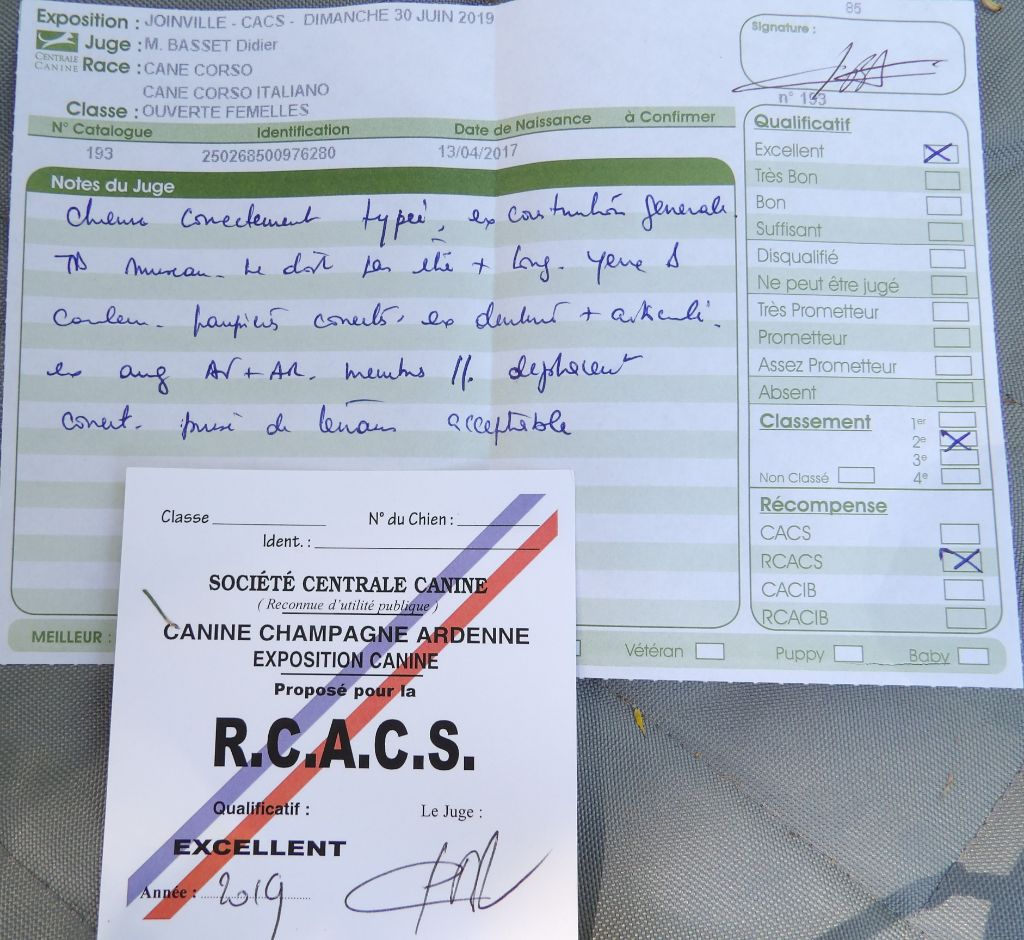 85
Exposition : JOINVILLE - CACS - DIMANCHE 30 JUIN 2019
Signature :
Juge : M. BASSET Didier
CENTRALE CANINE
Race : CANE CORSO
CANE CORSO ITALIANO
Classe : OUVERTE FEMELLES
n° 193
N° Catalogue Identification Date de Naissance à Confirmer
193 250268500976280 13/04/2017
Notes du Juge
chienne correctement typée, ex construction generale.
TB museau. Ne doit pas etre + long. yeux
couleur. paupières correctes. ex denture + articulé.
ex ang AV + AR. membres //. deplacement
correct. acceptable
Qualificatif
Excellent X
Très Bon
Bon
Suffisant
Disqualifié
Ne peut être jugé
Très Prometteur
Prometteur
Assez Prometteur
Absent
Classement 1er
2e X
3e
Non Classé 4e
Récompense
CACS
RCACS X
CACIB
RCACIB
MEILLEUR : Vétéran Puppy Baby
Classe N° du Chien :
Ident. :
SOCIÉTÉ CENTRALE CANINE
( Reconnue d'utilité publique )
CANINE CHAMPAGNE ARDENNE
EXPOSITION CANINE
Proposé pour la
R.C.A.C.S.
Qualificatif : Le Juge :
EXCELLENT
Année : 2019